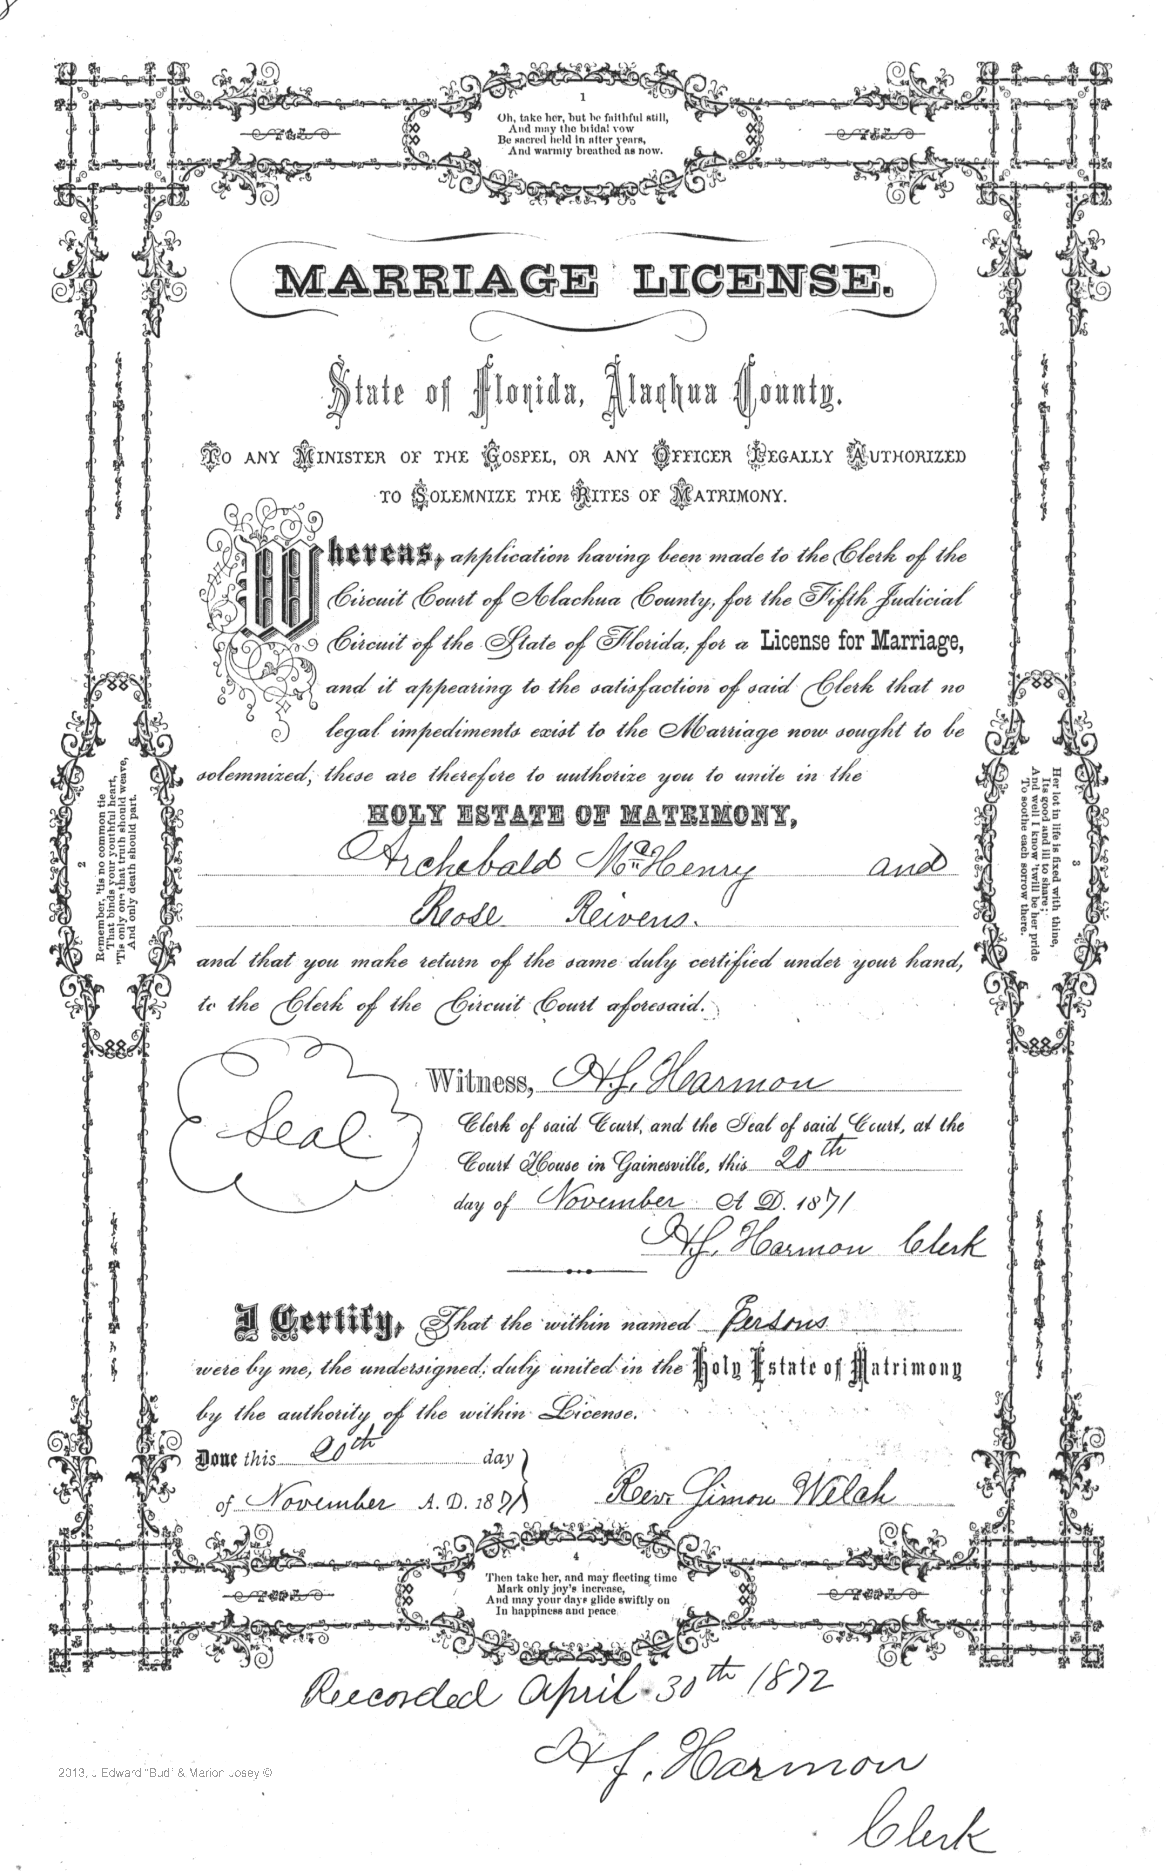 1
Oh, take her, but be faithful still,
And may the bridal vow
Be sacred held in after years,
And warmly breathed as now.
MARRIAGE LICENSE.
State of Florida, Alachua County.
TO ANY MINISTER OF THE GOSPEL, OR ANY OFFICER LEGALLY AUTHORIZED
TO SOLEMNIZE THE RITES OF MATRIMONY.
Whereas, application having been made to the Clerk of the
Circuit Court of Alachua County, for the Fifth Judicial
Circuit of the State of Florida, for a License for Marriage,
and it appearing to the satisfaction of said Clerk that no
legal impediments exist to the Marriage now sought to be
solemnized; these are therefore to authorize you to unite in the
HOLY ESTATE OF MATRIMONY,
Archebald McHenry and
Rose Reivens.
and that you make return of the same duly certified under your hand,
to the Clerk of the Circuit Court aforesaid.
2
Remember, 'tis no common tie
That binds your youthful heart,
'Tis only one that truth should weave,
And only death should part.
3
Her lot in life is fixed with thine,
Its good and ill to share;
And well I know 'twill be her pride
To soothe each sorrow there.
Seal.
Witness, H.J. Harmon
Clerk of said Court, and the Seal of said Court, at the
Court House in Gainesville, this 20th
day of November A D. 1871
H.J. Harmon Clerk
I Certify, That the within named Persons
were by me, the undersigned, duly united in the Holy Estate of Matrimony
by the authority of the within License.
Done this 20th day
of November A. D. 1871
Rev. Simon Welch
4
Then take her, and may fleeting time
Mark only joy's increase,
And may your days glide swiftly on
In happiness and peace
Recorded April 30th 1872
H.J. Harmon
Clerk
2013, J Edward "Bud" & Marion Josey ©